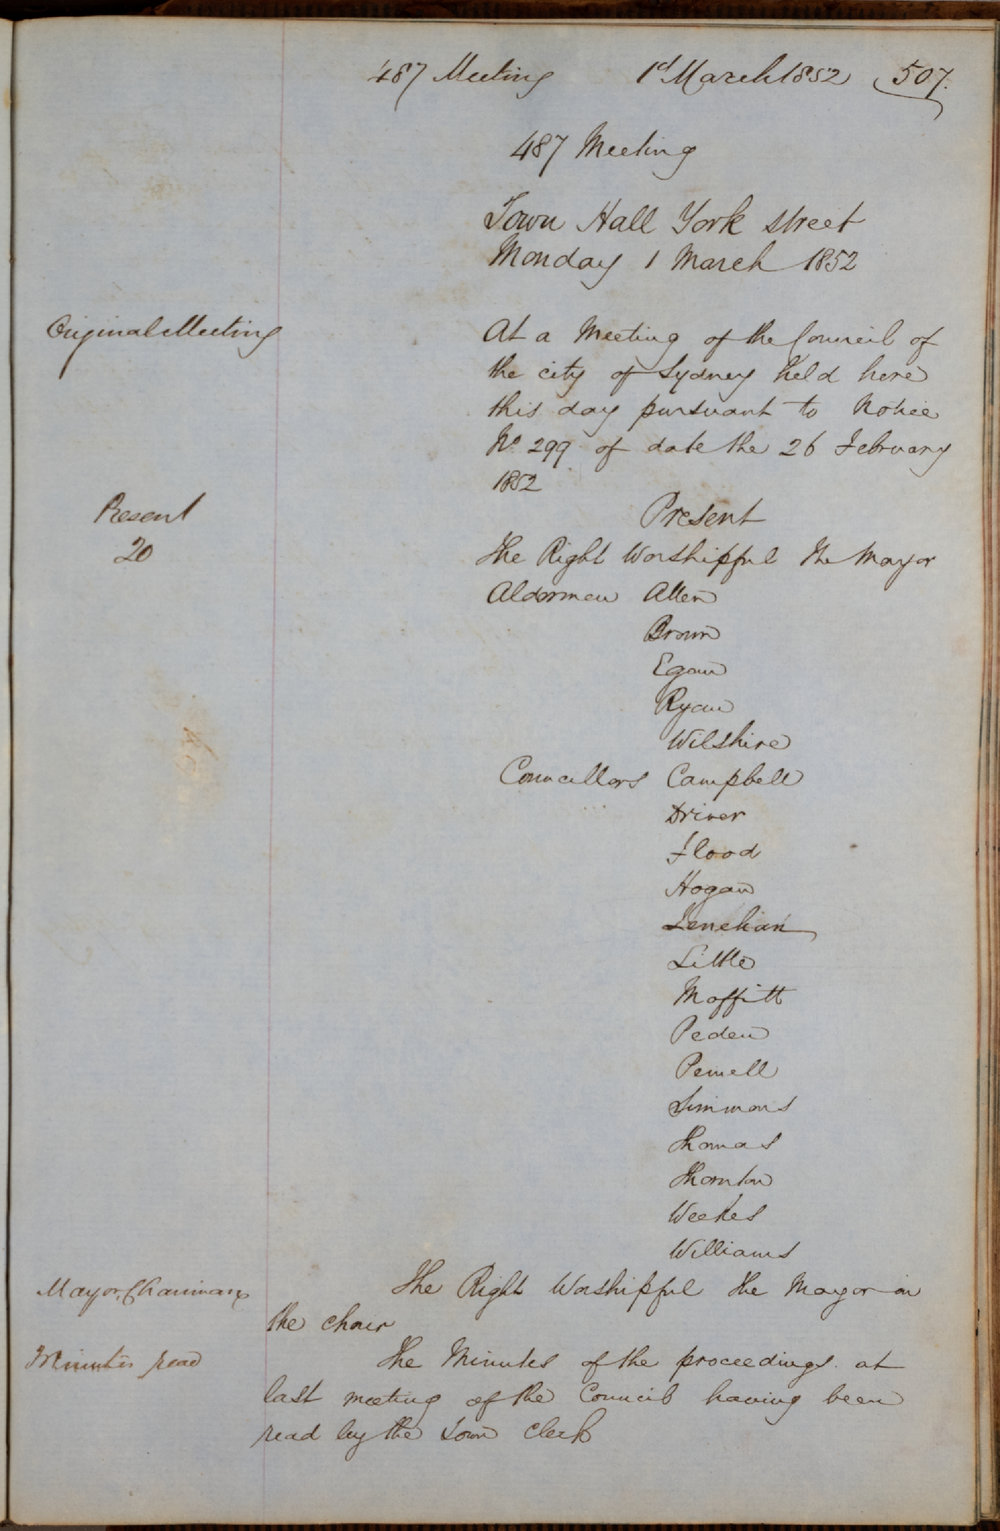 487 Meeting 1st March 1852 507.
487 Meeting
Town Hall York street
Monday 1 March 1852
Original Meeting
At a Meeting of the Council of
the city of Sydney held here
this day pursuant to Notice
No. 299 of date the 26 February
1852
Present
20
Present
The Right Worshipful The Mayor
Aldermen Allen
Brown
Egan
Ryan
Wilshire
Councillors Campbell
Driver
Flood
Hogan
Lenehan
Little
Moffitt
Peden
Pemell
Simmons
Thomas
Thornton
Weekes
Williams
Mayor, Chairman
The Right Worshipful the Mayor in
the chair
Minutes read
The Minutes of the proceedings at
last meeting of the Council having been
read by the Town Clerk